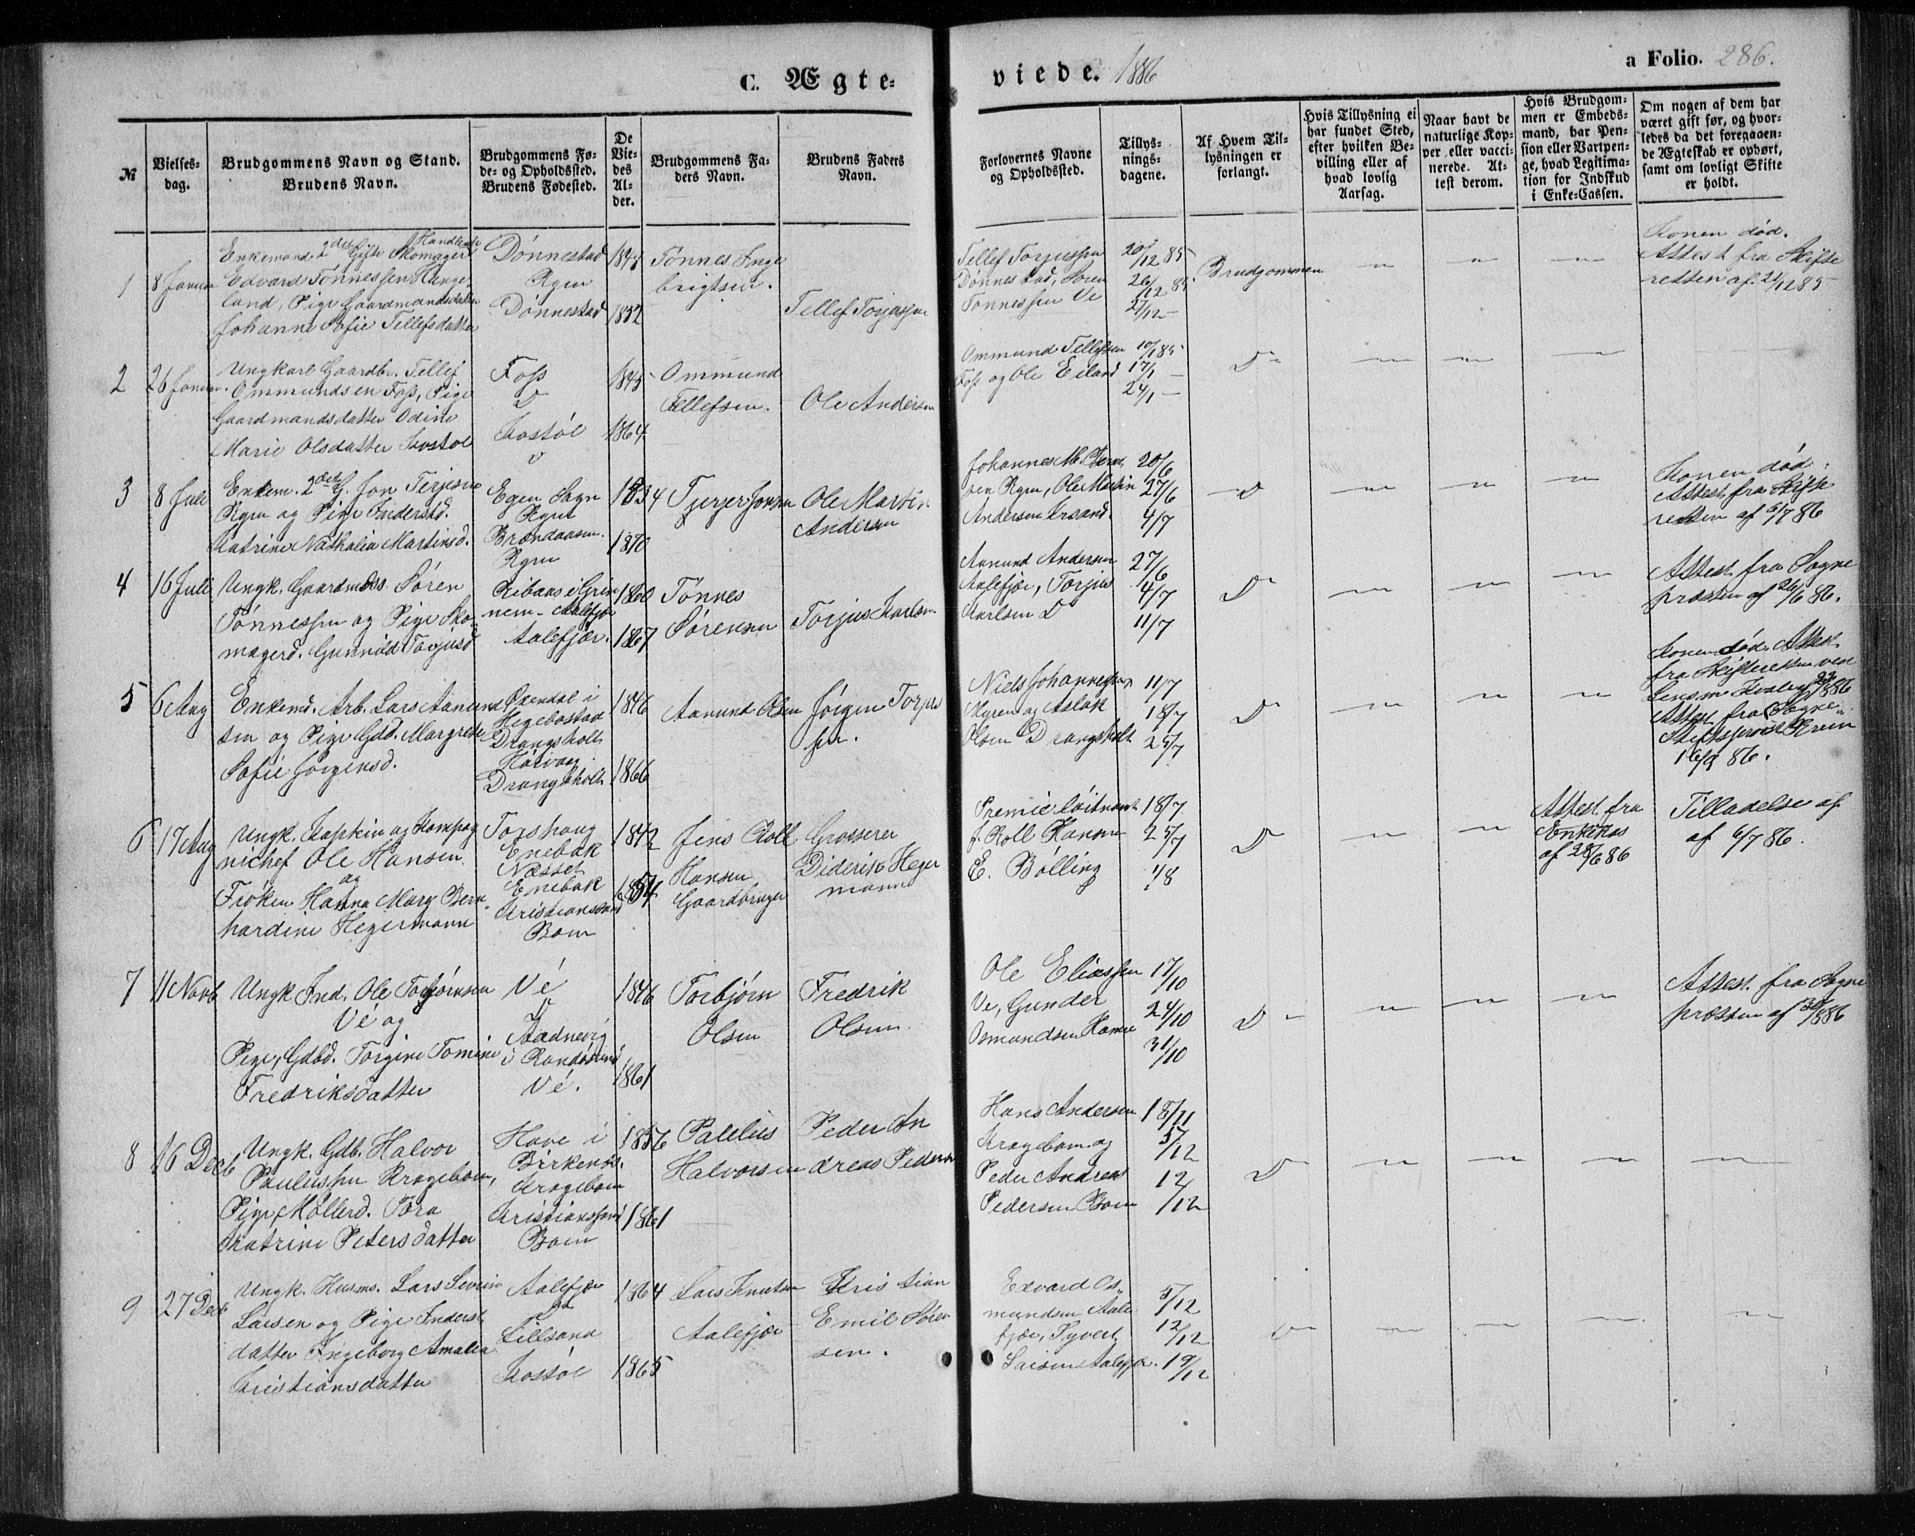 C. Ægte-
viede. 1886
a Folio. 286.
№
Vielses-
dag.
Brudgommens Navn og Stand.
Brudens Navn.
Brudgommens Fø-
de- og Opholdssted.
Brudens Fødested.
De
Vie-
des
Al-
der.
Brudgommens Fa-
ders Navn.
Brudens Faders
Navn.
Forlovernes Navne
og Opholdssted.
Tillys-
nings-
dagene.
Af Hvem Til-
lysningen er
forlangt.
Hvis Tillysning ei
har fundet Sted,
efter hvilken Be-
villing eller af
hvad lovlig
Aarsag.
Naar havt de
naturlige Kop-
per eller vacci-
nerede. At-
test derom.
Hvis Brudgom-
men er Embeds-
mand, har Pen-
sion eller Vartpen-
ge, hvad Legitima-
tion for Indskud
i Enke-Cassen.
Om nogen af dem har
været gift før, og hvor-
ledes da det foregaaen-
de Ægteskab er ophørt,
samt om lovligt Skifte
er holdt.
1
8 Januar
Enkemand 2det Gifte Skomager
Edvard Tønnessen Hauge
land, Pige Gaardmandsdatter
Johanne Sofie Tellefsdatter
Dønnestad
Rgen
Dønnestad
1852
Tønnes Inge
brigtsen.
Tellef Torjussen
Tellef Torjussen
Dønnestad, Søren
Tønnessen Ve
20/12 85
26/12 85
27/12 —
Brudgommen
Konen død.
Attest fra Skifte
retten af 21/12 85
2
26 Januar
Ungkarl Gaardbr. Tellef
Ommundsen Foss, Pige
Gaardmandsdatter Odine
Marie Olsdatter Kostøl
Foss
Kostøl
1845
1864
Ommund
Tellefsen.
Ole Andersen
Ommund Tellefsen
Foss og Ole Eiland
10/1 85
17/1 —
24/1 —
D
3
8 Juli
Enkem. 2det G. Jon Terjesen
Rgen og Pige Inderstd.
Katrine Nathalia Martinsd.
Egen Sogn
Rgen
Brændaasen
Rgen
1834
1870
Terjer Jonsen
Ole Martin
Andersen
Ole Martin
Andersen
20/6
27/6
4/7
D
Konen død.
Attest fra Skifte
retten af 5/7 86
4
16 Juli
Ungk. Gaardmds. Søren
Tønnessen og Pige Sko
magerd. Gunnild Torjusd
Ribaas i Grin
nem - Aalefjær
Aalefjær.
1860
1867
Tønnes
Sørensen
Torjus Karlsen
Aanund Andersen
Aalefjær, Torjus
Karlsen D
27/6
4/7
11/7
D
Attest fra Sogne
præsten af 26/6 86.
5
6 Aug
Enkemd. Arb. Lars Aanund
sen og Pige Gdb. Margrete
Sofie Jørgensd.
Øxendal i
Hegebostad
Drangsholt
Høivaag
Drangsholt
1846
1866
Aanund Olsen
Jørgen Torjus
sen.
Niels Johannessen
Myren og Aslak
Olsen Drangsholt
11/7
18/7
25/7
D
Konen død. Attest
fra Skifteretten ved
Attest fra Sogne
6
17 Aug
Ungk. Kaptein og Kompag
nichef Ole Hansen
og
Frøken Hanna Mary Bern
hardine Hegermann
Enebak
Næsset
Enebak
Kristianssand
Boen
1842
1854
Jens Roll
Hansen
Gaardbruger
Grosserer
Diderik Heger
mann
Premierløitnant
J. Roll Hansen
E. Bølling
18/7
25/7
1/8
D
Attest fra
Enkekas
af 28/6 86
Tilladelse af
af 6/7 86.
7
11 Novb
Ungk. Ind. Ole Torbjørnsen
Vé og
Pige, Gdbd. Torgine Tomine
Fredriksdatter
Vé
Aadnevig
i Randøsund
Vé.
1846
1861
Torbjørn
Olsen
Fredrik
Olsen
Ole Eliassen
Ve, Gunder
Osmundsen Hamre
17/10
24/10
31/10
D
Attest fra Sogne
præsten af
8
16 Decb
Ungk. Gdb. Halvor
Paulussen Krageboen,
Pige Møllerd. Tora
Katrine Petersdatter
Hove i
Birkenes.
Krageboen
Kristianssand
Boen
1856
1861
Paulus
Halvorsen
Peder An
dreas Pedersen
Hans Andersen
Krageboen og
Peder Andreas
Pedersen Boen
5/12
12/12
D
9
27 Decb
Ungk. Husms. Lars Severin
Larsen og Pige Inderst
datter Ingeborg Amalia
Kristiansdatter
Aalefjær
Lillesand
Kostøl
1864
1865
Lars Knutsen
Aalefjær
Kristian
Emil Søren
sen.
Edvard Os„
mundsen Aale
fjær, Syvert
Larsen Aalefjær.
5/12
12/12
19/12
D